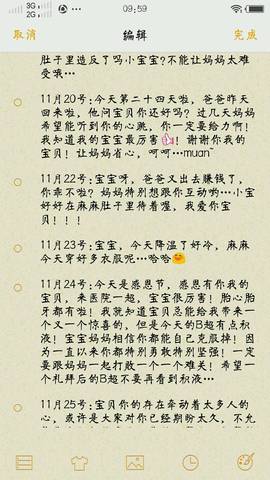 3G
2G
09:59
取消
编辑
完成
肚子里造反了吗小宝宝?不能让妈妈太难
受哦…
11月20号:今天第二十四天啦，爸爸昨天
回来啦，他问宝贝你还好吗？过几天妈妈
希望能听到你的心跳，你一定要给力啊！
我知道我的宝宝最厉害👍！谢谢你我的宝
贝！让妈妈省心，呵呵…muan~
11月22号:宝宝呀，爸爸又出去赚钱了，
你乖不乖？妈妈特别想跟你互动哟…小宝
好好在麻麻肚子里待着喔，我爱你宝
贝！！！
11月23号:宝宝，今天降温了好冷，麻麻
今天穿好多衣服呢…哈哈😄
11月24号:今天是感恩节，感恩有你我的
宝贝，来医院一趟，宝宝很厉害！胎心胎
牙都有啦！我就知道宝贝总能给我带来一
个又一个惊喜的，但是今天的B超有点积
液！宝宝妈妈相信你都能自己克服掉！因
为一直以来你都特别勇敢特别坚强！一定
要跟妈妈一起打败一个一个难关！希望一
个礼拜后的B超不要再看到积液…
11月25号:宝贝你的存在牵动着太多人的
心，或许是大家对你已经期盼太久，不允